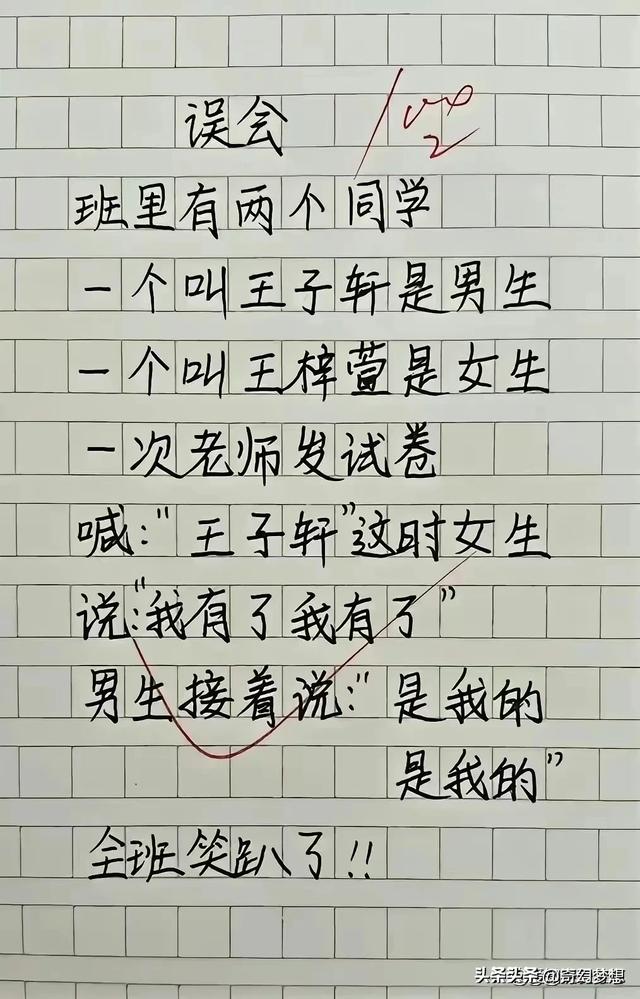 误会
班里有两个同学
一个叫王子轩是男生
一个叫王梓萱是女生
一次老师发试卷
喊:"王子轩"这时女生
说:"我有了我有了"
男生接着说:"是我的
是我的"
全班笑趴了!!
@奇幻梦想